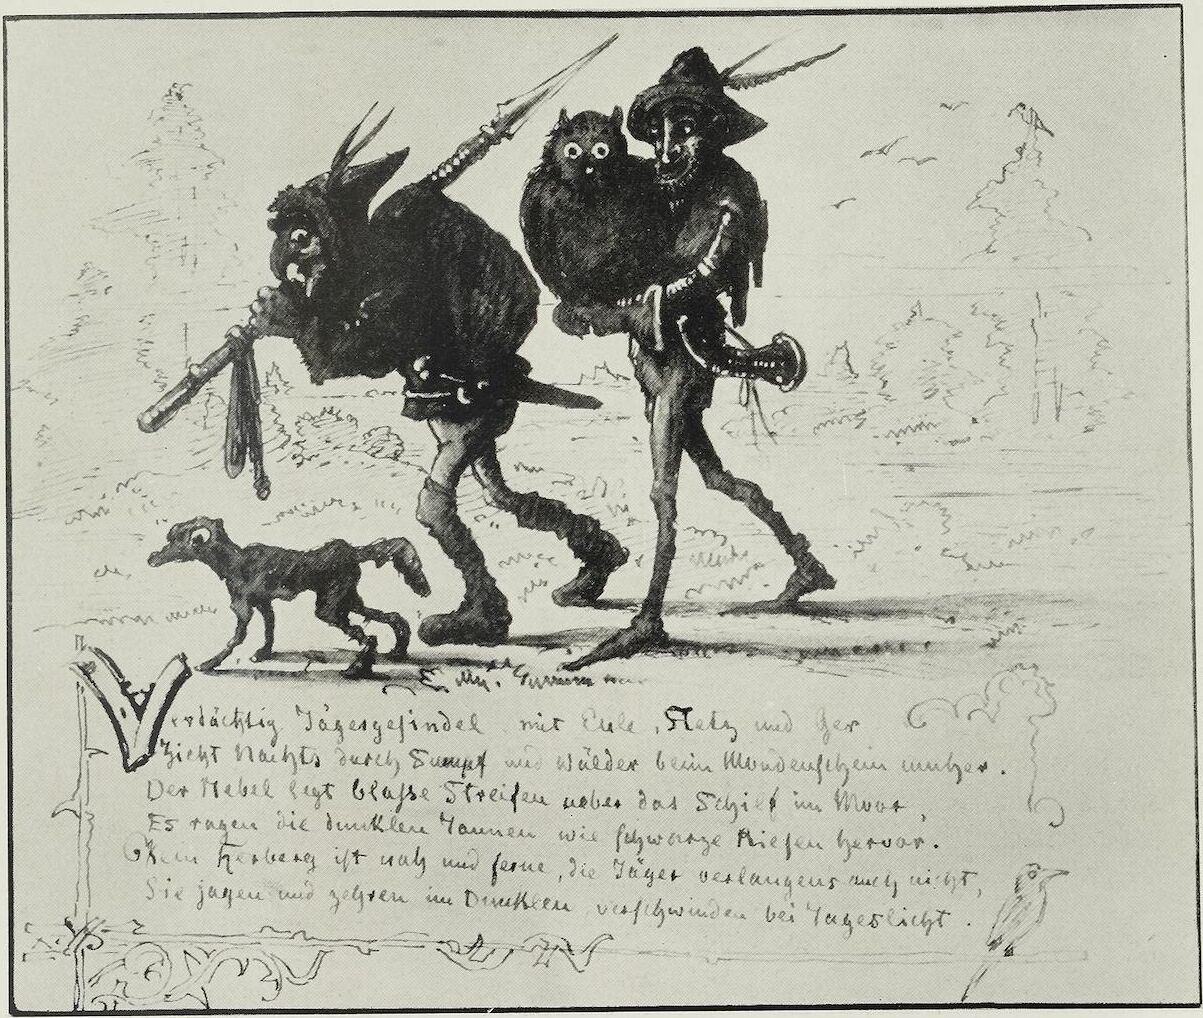 Verdächtig Jägergesindel mit Eule, Netz und Ger
Zieht Nachts durch Sumpf und Wälder beim Mondenschein umher.
Der Nebel legt blaße Streifen ueber das Schilf im Moor,
Es ragen die dunklen Tannen wie schwarze Riesen hervor.
Kein Herberg ist nah und ferne, die Jäger verlangens auch nicht,
Sie jagen und zehren im Dunklen, verschwinden bei Tageslicht.